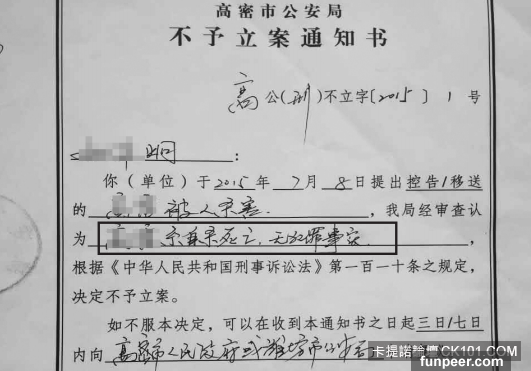 高密市公安局
不予立案通知书
高公(刑)不立字[2015]1号
:
你(单位)于2015年7月8日提出控告/移送
的 被人杀害,我局经审查认
为 系自杀死亡,无犯罪事实.,
根据《中华人民共和国刑事诉讼法》第一百一十条之规定,
决定不予立案。
如不服本决定,可以在收到本通知书之日起三日/七日
内向高密市人民政府或潍坊市公安局
卡提諾論壇 CK101.COM
funpeer.com